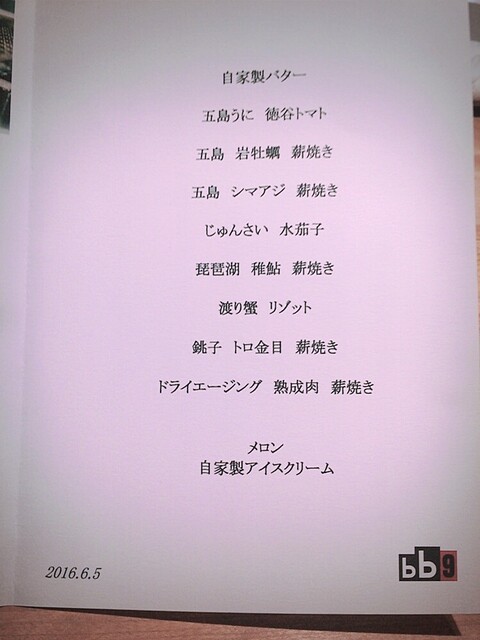 自家製バター
五島うに 徳谷トマト
五島 岩牡蠣 薪焼き
五島 シマアジ 薪焼き
じゅんさい 水茄子
琵琶湖 稚鮎 薪焼き
渡り蟹 リゾット
銚子 トロ金目 薪焼き
ドライエージング 熟成肉 薪焼き
メロン
自家製アイスクリーム
2016.6.5
bb9